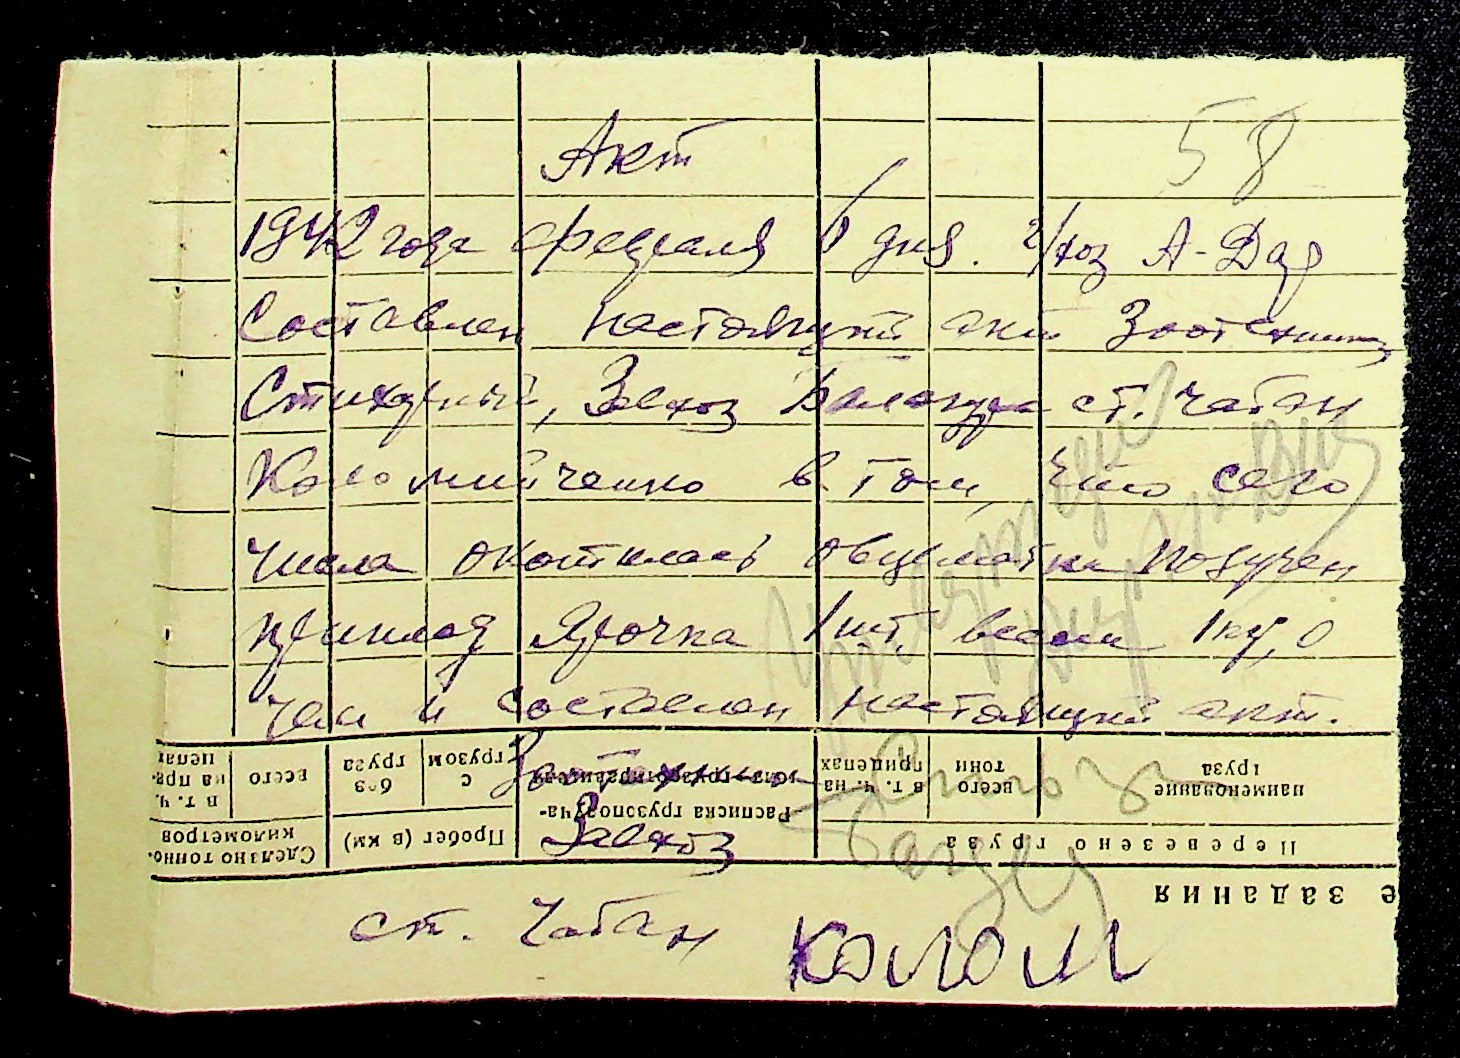 58
Акт
1942 года февраля 6 дня. с/хоз А-Дар
Составлен настоящий акт Зоотехник
Стихарный, Завхоз ст. чабан
Коломийченко в том, что сего
числа окотилась овцематка получен
приплод Ярочка 1 шт. весом 1 кг, 0
чем и составлен настоящий акт.
Зоотехник
Завхоз
ст. Чабан Колом
е задания
Перевезено груза
Расписка грузополуча-
Пробег (в км)
Сделано тонно-километров
наименование груза
всего тонн
в т. ч. на прицепах
с грузом
без груза
всего
в т. ч. на при-